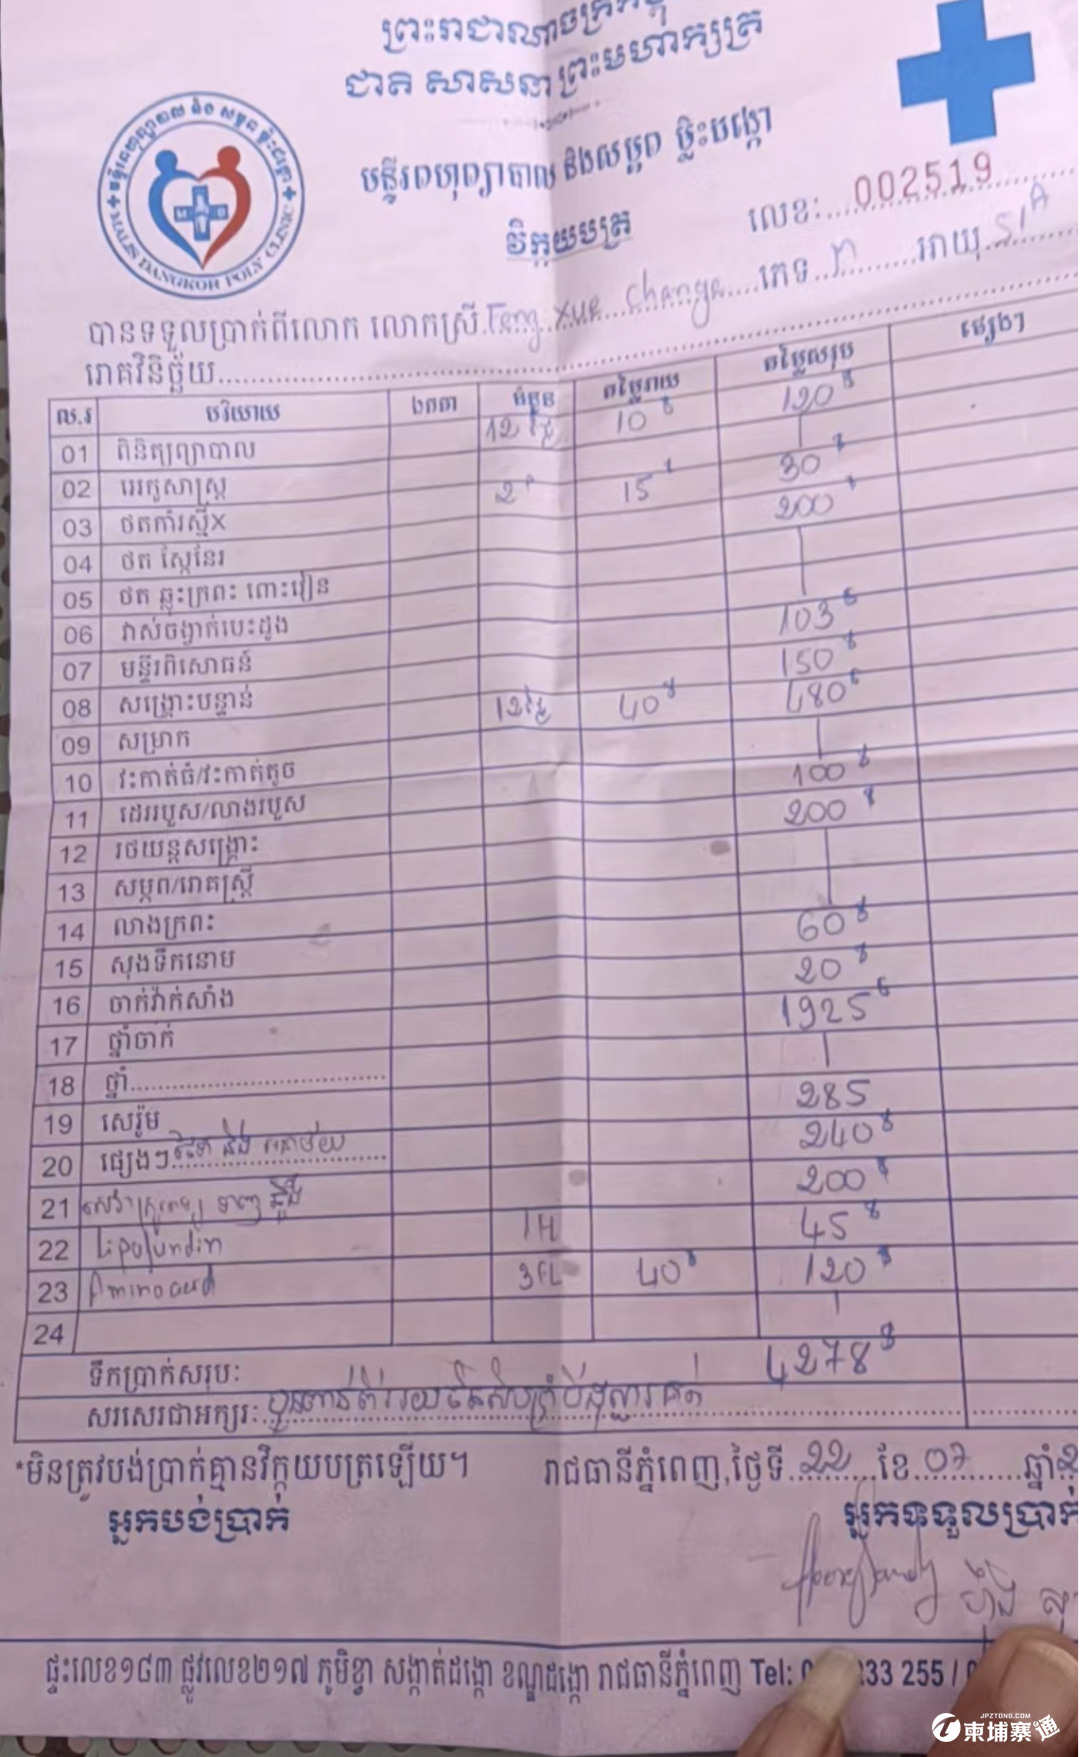 ព្រះរាជាណាចក្រកម្ពុជា
ជាតិ សាសនា ព្រះមហាក្សត្រ
មន្ទីរពហុព្យាបាល និងសម្ភព ម្លិះដង្កោ
MALIS DANGKOR POLY CLINIC
M D
វិក្កយបត្រ
លេខ: 002519
បានទទួលប្រាក់ពីលោក លោកស្រី Feng Xue Change ភេទ អាយុ 51
រោគវិនិច្ឆ័យ
ល.រ បរិយាយ ឯកតា ចំនួន តម្លៃរាយ តម្លៃសរុប ផ្សេងៗ
01 ពិនិត្យព្យាបាល 12 ថ្ងៃ 10$ 120$
02 អេកូសាស្ត្រ 2 15 30
03 ថតកាំរស្មីX 200
04 ថត ស្កែនែរ
05 ថត ឆ្លុះក្រពះ ពោះវៀន
06 វាស់ចង្វាក់បេះដូង 103$
07 មន្ទីរពិសោធន៍ 150$
08 សង្គ្រោះបន្ទាន់ 12ថ្ងៃ 40$ 480$
09 សម្រាក
10 វះកាត់ធំ/វះកាត់តូច 100$
11 ដេររបួស/លាងរបួស 200$
12 រថយន្តសង្គ្រោះ
13 សម្ភព/រោគស្ត្រី
14 លាងក្រពះ 60$
15 សុងទឹកនោម 20$
16 ចាក់វ៉ាក់សាំង 1925$
17 ថ្នាំចាក់
18 ថ្នាំ
19 សេរ៉ូម 285
20 ផ្សេងៗ និង 240$
21 200$
22 Lipofundin 45$
23 Aminoacid 3FL 40$ 120$
24
ទឹកប្រាក់សរុប: 4278$
សរសេរជាអក្សរ:
*មិនត្រូវបង់ប្រាក់គ្មានវិក្កយបត្រឡើយ។ រាជធានីភ្នំពេញ,ថ្ងៃទី 22 ខែ 07 ឆ្នាំ
អ្នកបង់ប្រាក់ អ្នកទទួលប្រាក់
ផ្ទះលេខ១៨៣ ផ្លូវលេខ២១៧ ភូមិខ្វា សង្កាត់ដង្កោ ខណ្ឌដង្កោ រាជធានីភ្នំពេញ Tel: 233 255 /
JPZTONG.COM
柬埔寨通